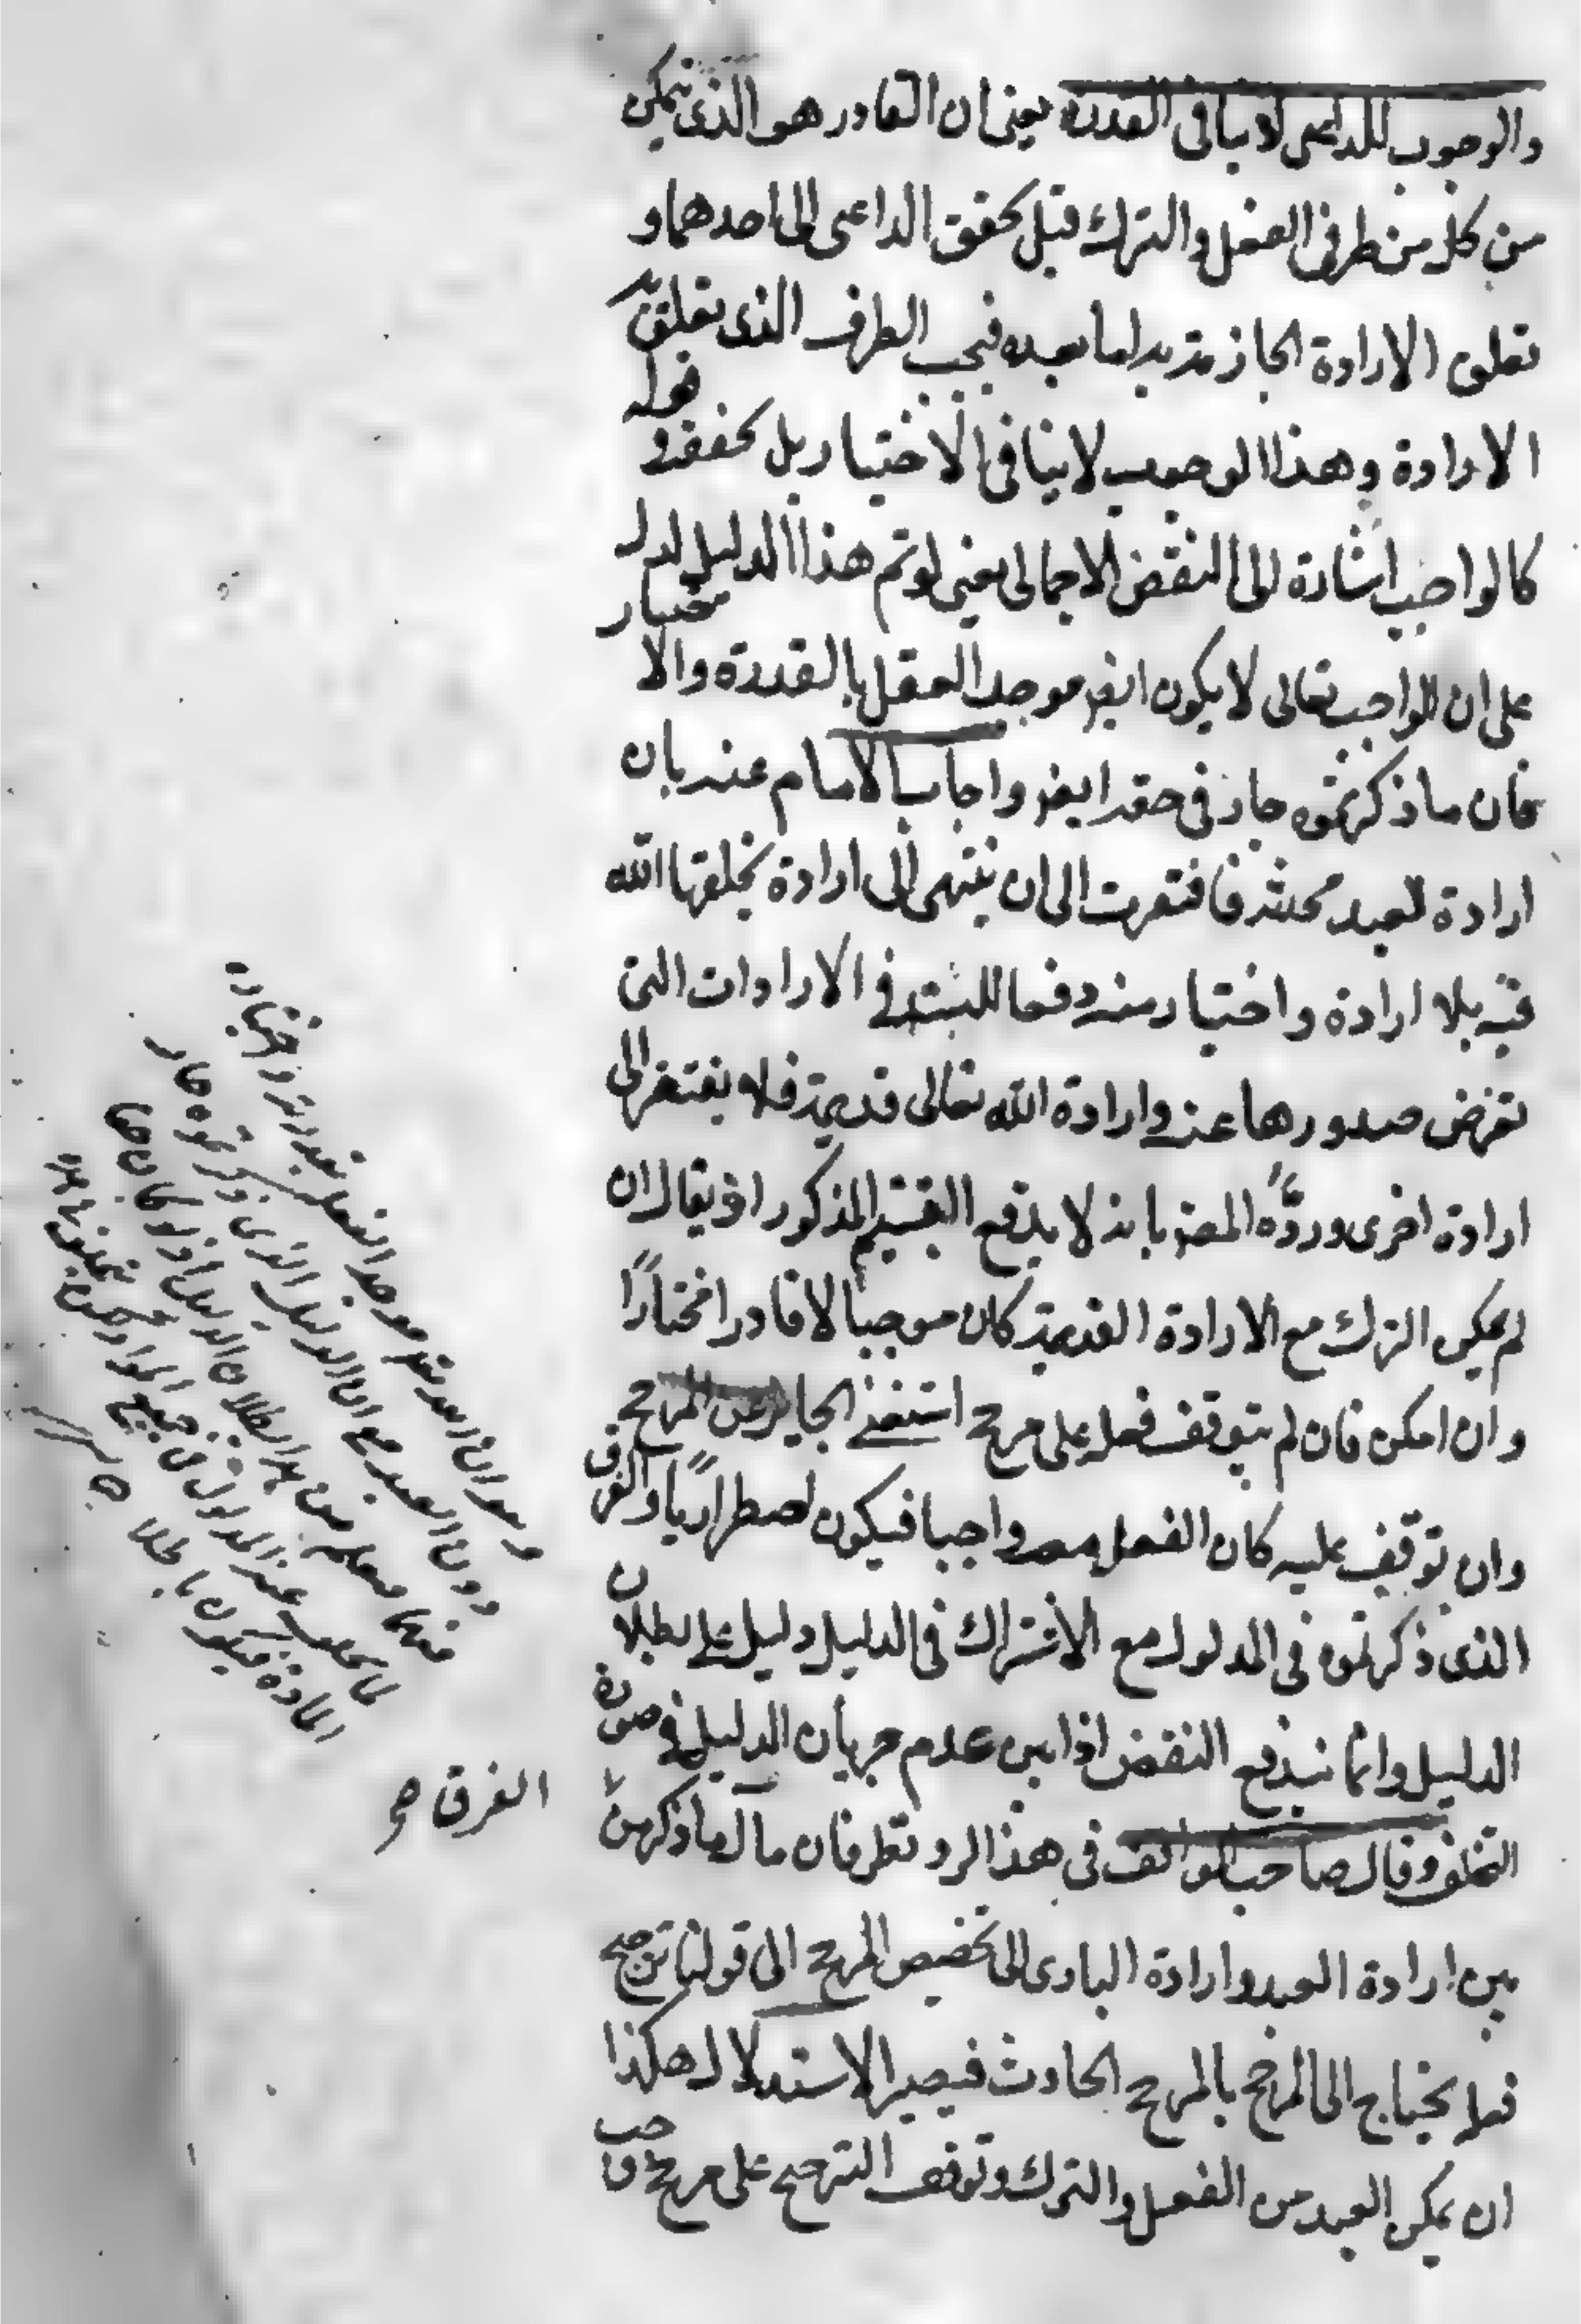 والوجوب للداعى لا ينافى القدرة يعنى ان القادر هو الذى يتمكن
من كل من طرفى الفعل والترك قبل تحقق الداعى الى احدهما و
تعلق الارادة الجازمة به اما بعده فيجب الطرف الذى تعلق به
الارادة وهذا الوجوب لا ينافى الاختيار بل يحققه و قوله
كالواجب اشارة الى النقض الاجمالى يعنى لو تم هذا الدليل لدل
على ان الواجب تعالى لا يكون ايضا موجد الفعل بالقدرة والاختيار
فان ما ذكرتموه جاز فى حقه ايضا واجاب الامام عنه بان
ارادة العبد محدثة فافتقرت الى ان ينتهى الى ارادة يخلقها الله
فيه بلا ارادة واختيار منه دفعا للتسلسل فى الارادات التى
تفرض صدورها عنه وارادة الله تعالى قديمة فلا يفتقر الى
ارادة اخرى وردّه المصنف بانه لا يدفع التقسيم المذكور اذ يقال ان
لم يمكن الترك مع الارادة القديمة كان موجبا لا قادرا مختارًا
وان امكن فان لم يتوقف فعله على مرجح استغنى الجايز عن المرجح
وان توقف عليه كان الفعل معه واجبا فيكون اضطراريًا والفرق
الذى ذكرتموه فى المدلول مع الاشتراك فى الدليل دليل على بطلان
الدليل وانما يندفع النقض اذا بين عدم جريان الدليل فى صورة
التخلف وقال صاحب المواقف فى هذا الرد نظر فان مآل ما ذكره من
الفرق صح
بين ارادة العبد وارادة البارى الى تخصيص المرجح الى قولنا ترجيح
فعله يحتاج الى المرجح بالمرجح الحادث فيصير الاستدلال هكذا
ان يمكن العبد من الفعل والترك وتوقف الترجيح على مرجح واجب
وهو ان العبد موجد الفعل بقدرته واختياره
دون العبد مع ان الدليل الذى ذكرتموه جار
المادة فيكون باطلا